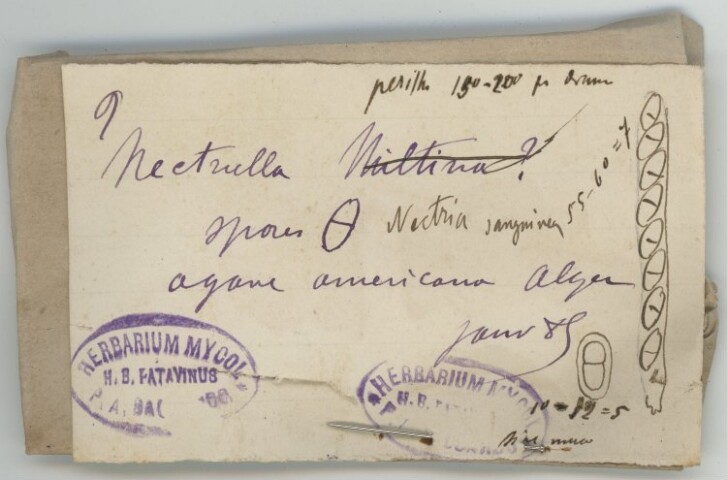 perith 150-200 μ diam
? Nectriella Miltina?
spores Nectria sanguinea 55-60=7
agave americana Alger
janv 85
HERBARIUM MYCOL.
H. B. PATAVINUS
P. A. SAC
HERBARIUM MYCOL
H. B. PATA
10-12=5